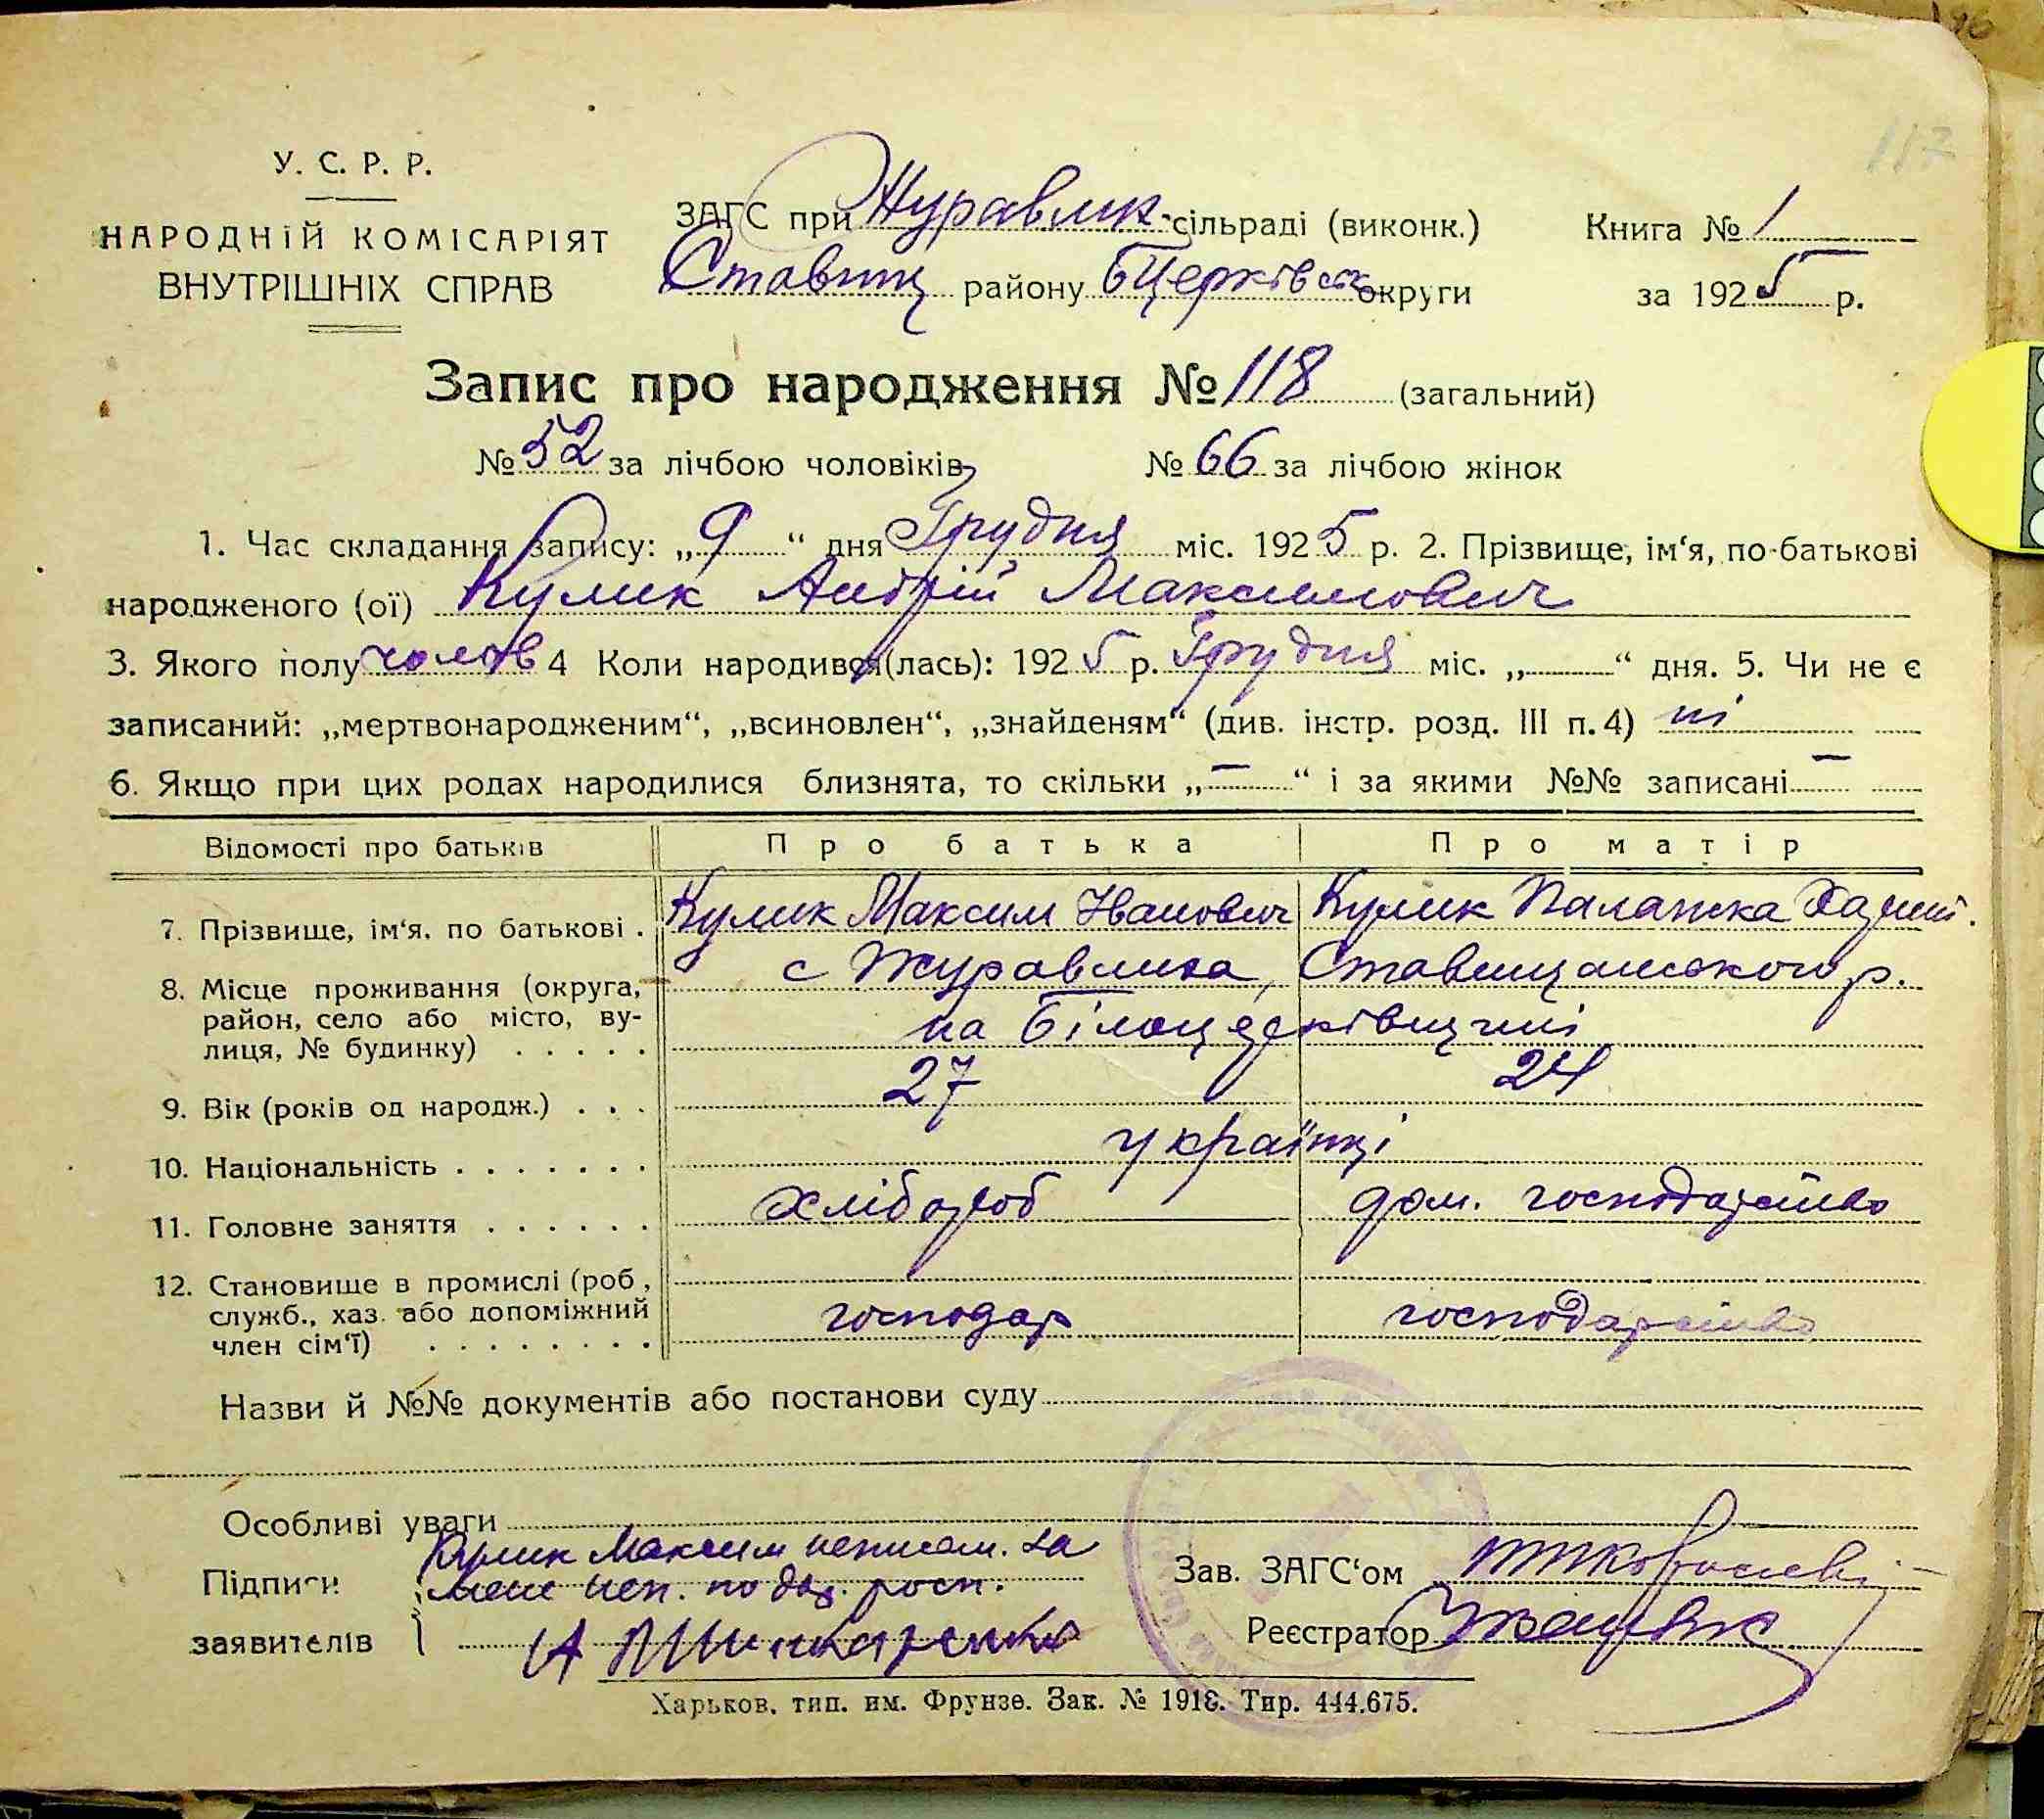 117
У. С. Р. Р.
НАРОДНІЙ КОМІСАРІЯТ
ВНУТРІШНІХ СПРАВ
ЗАГС при Журавлик. сільраді (виконк.)
Ставищ району БЦерківськ округи
Книга № 1
за 1925 р.
Запис про народження № 118 (загальний)
№ 52 за лічбою чоловіків № 66 за лічбою жінок
1. Час складання запису: „9“ дня Грудня міс. 1925 р. 2. Прізвище, ім‘я, по-батькові
народженого (ої) Кулик Андрій Максимович
3. Якого полу чолов 4 Коли народився(лась): 1925 р. Грудня міс. „—“ дня. 5. Чи не є
записаний: „мертвонародженим“, „всиновлен“, „знайденям“ (див. інстр. розд. III п. 4) ні
6. Якщо при цих родах народилися близнята, то скільки „—“ і за якими №№ записані —
Відомості про батьків Про батька Про матір
7. Прізвище, ім‘я, по батькові . Кулик Максим Іванович Кулик Палажка
8. Місце проживання (округа, район, село або місто, ву-лиця, № будинку) . . . . . с Журавлиха, Ставищанського р.
на Білоцерківщині
9. Вік (років од народж.) . . . 27 24
10. Національність . . . . . . . українці
11. Головне заняття . . . . . . хлібороб дом. господарство
12. Становище в промислі (роб, служб., хаз. або допоміжний член сім‘ї) . . . . . . . . господар господарство
Назви й №№ документів або постанови суду
Особливі уваги
Підписи Кулик Максим неписьм. за
мене неп. по дов. росп.
заявителів А Шинкаренко
Зав. ЗАГС‘ом
Реєстратор
Харьков, тип. им. Фрунзе. Зак. № 1918. Тир. 444.675.